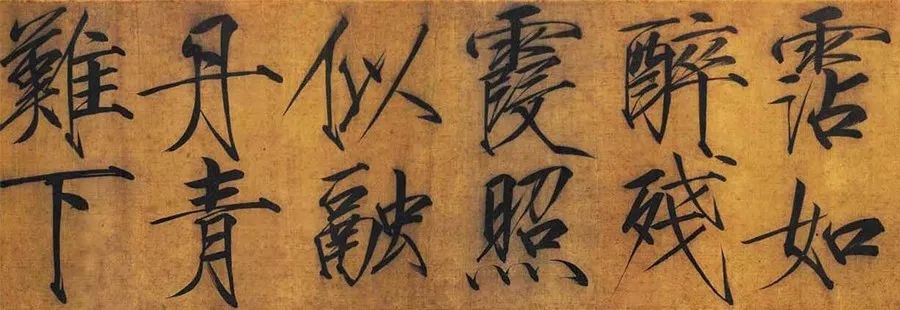 霑如
醉残
霞照
似融
丹青
難下